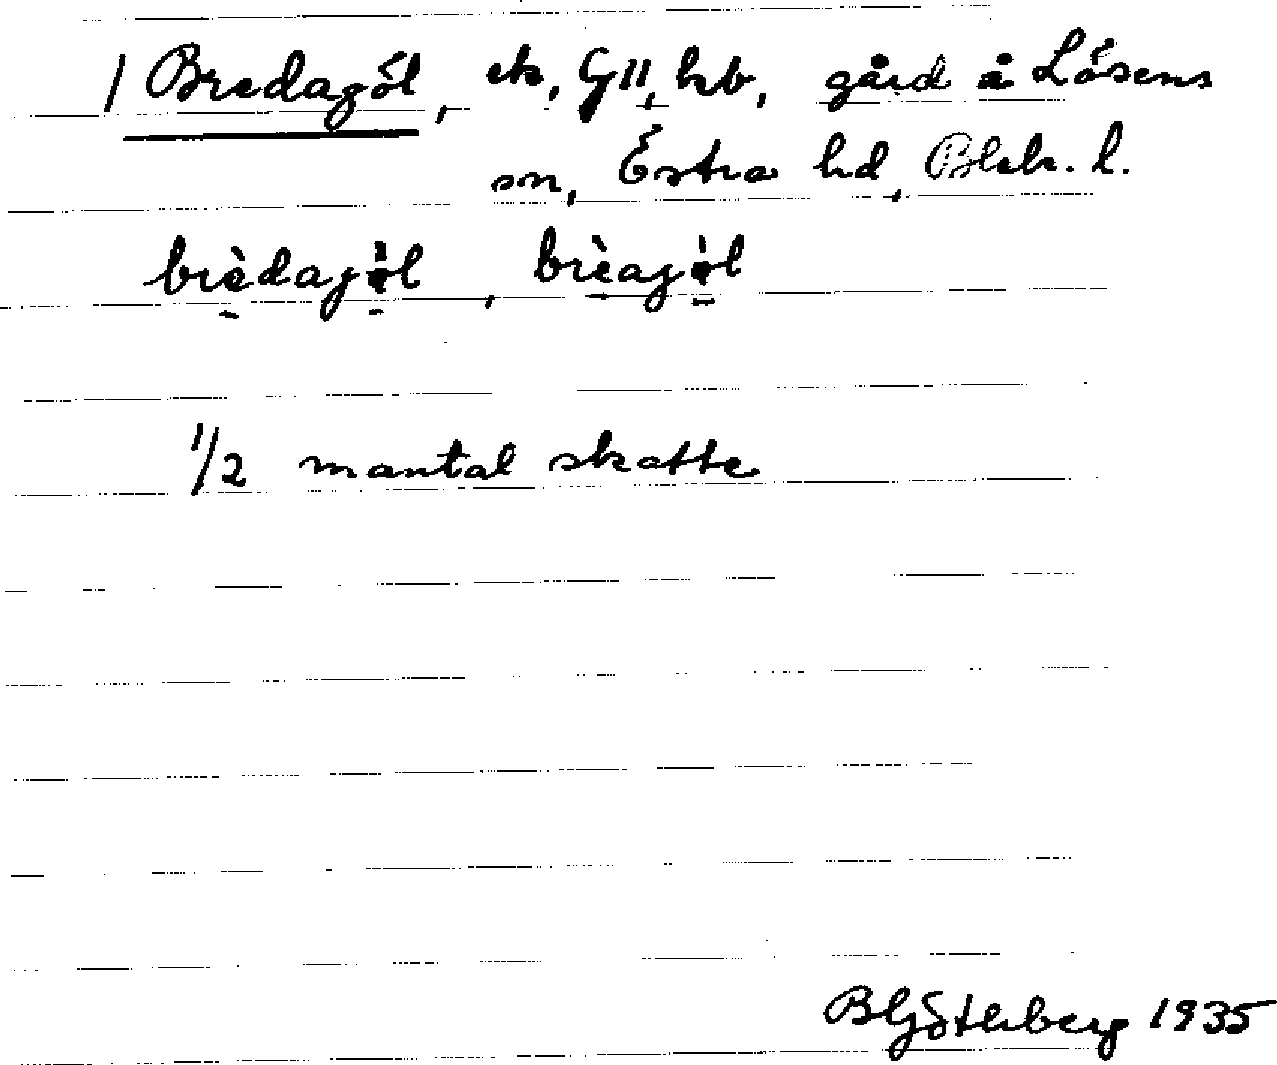 1 Bredagöl, ek, GII, kb, gård å Lösens
sn, Östra hd, Blek. l.
brèdagö̀l, brèagö̀l
1/2 mantal skatte
B Götlberg 1935